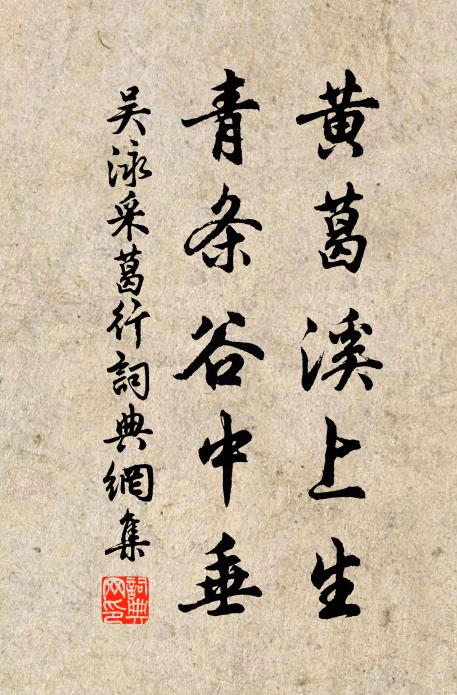 黄葛溪上生
青条谷中垂
吴泳采葛行詞典網集
詞典网印